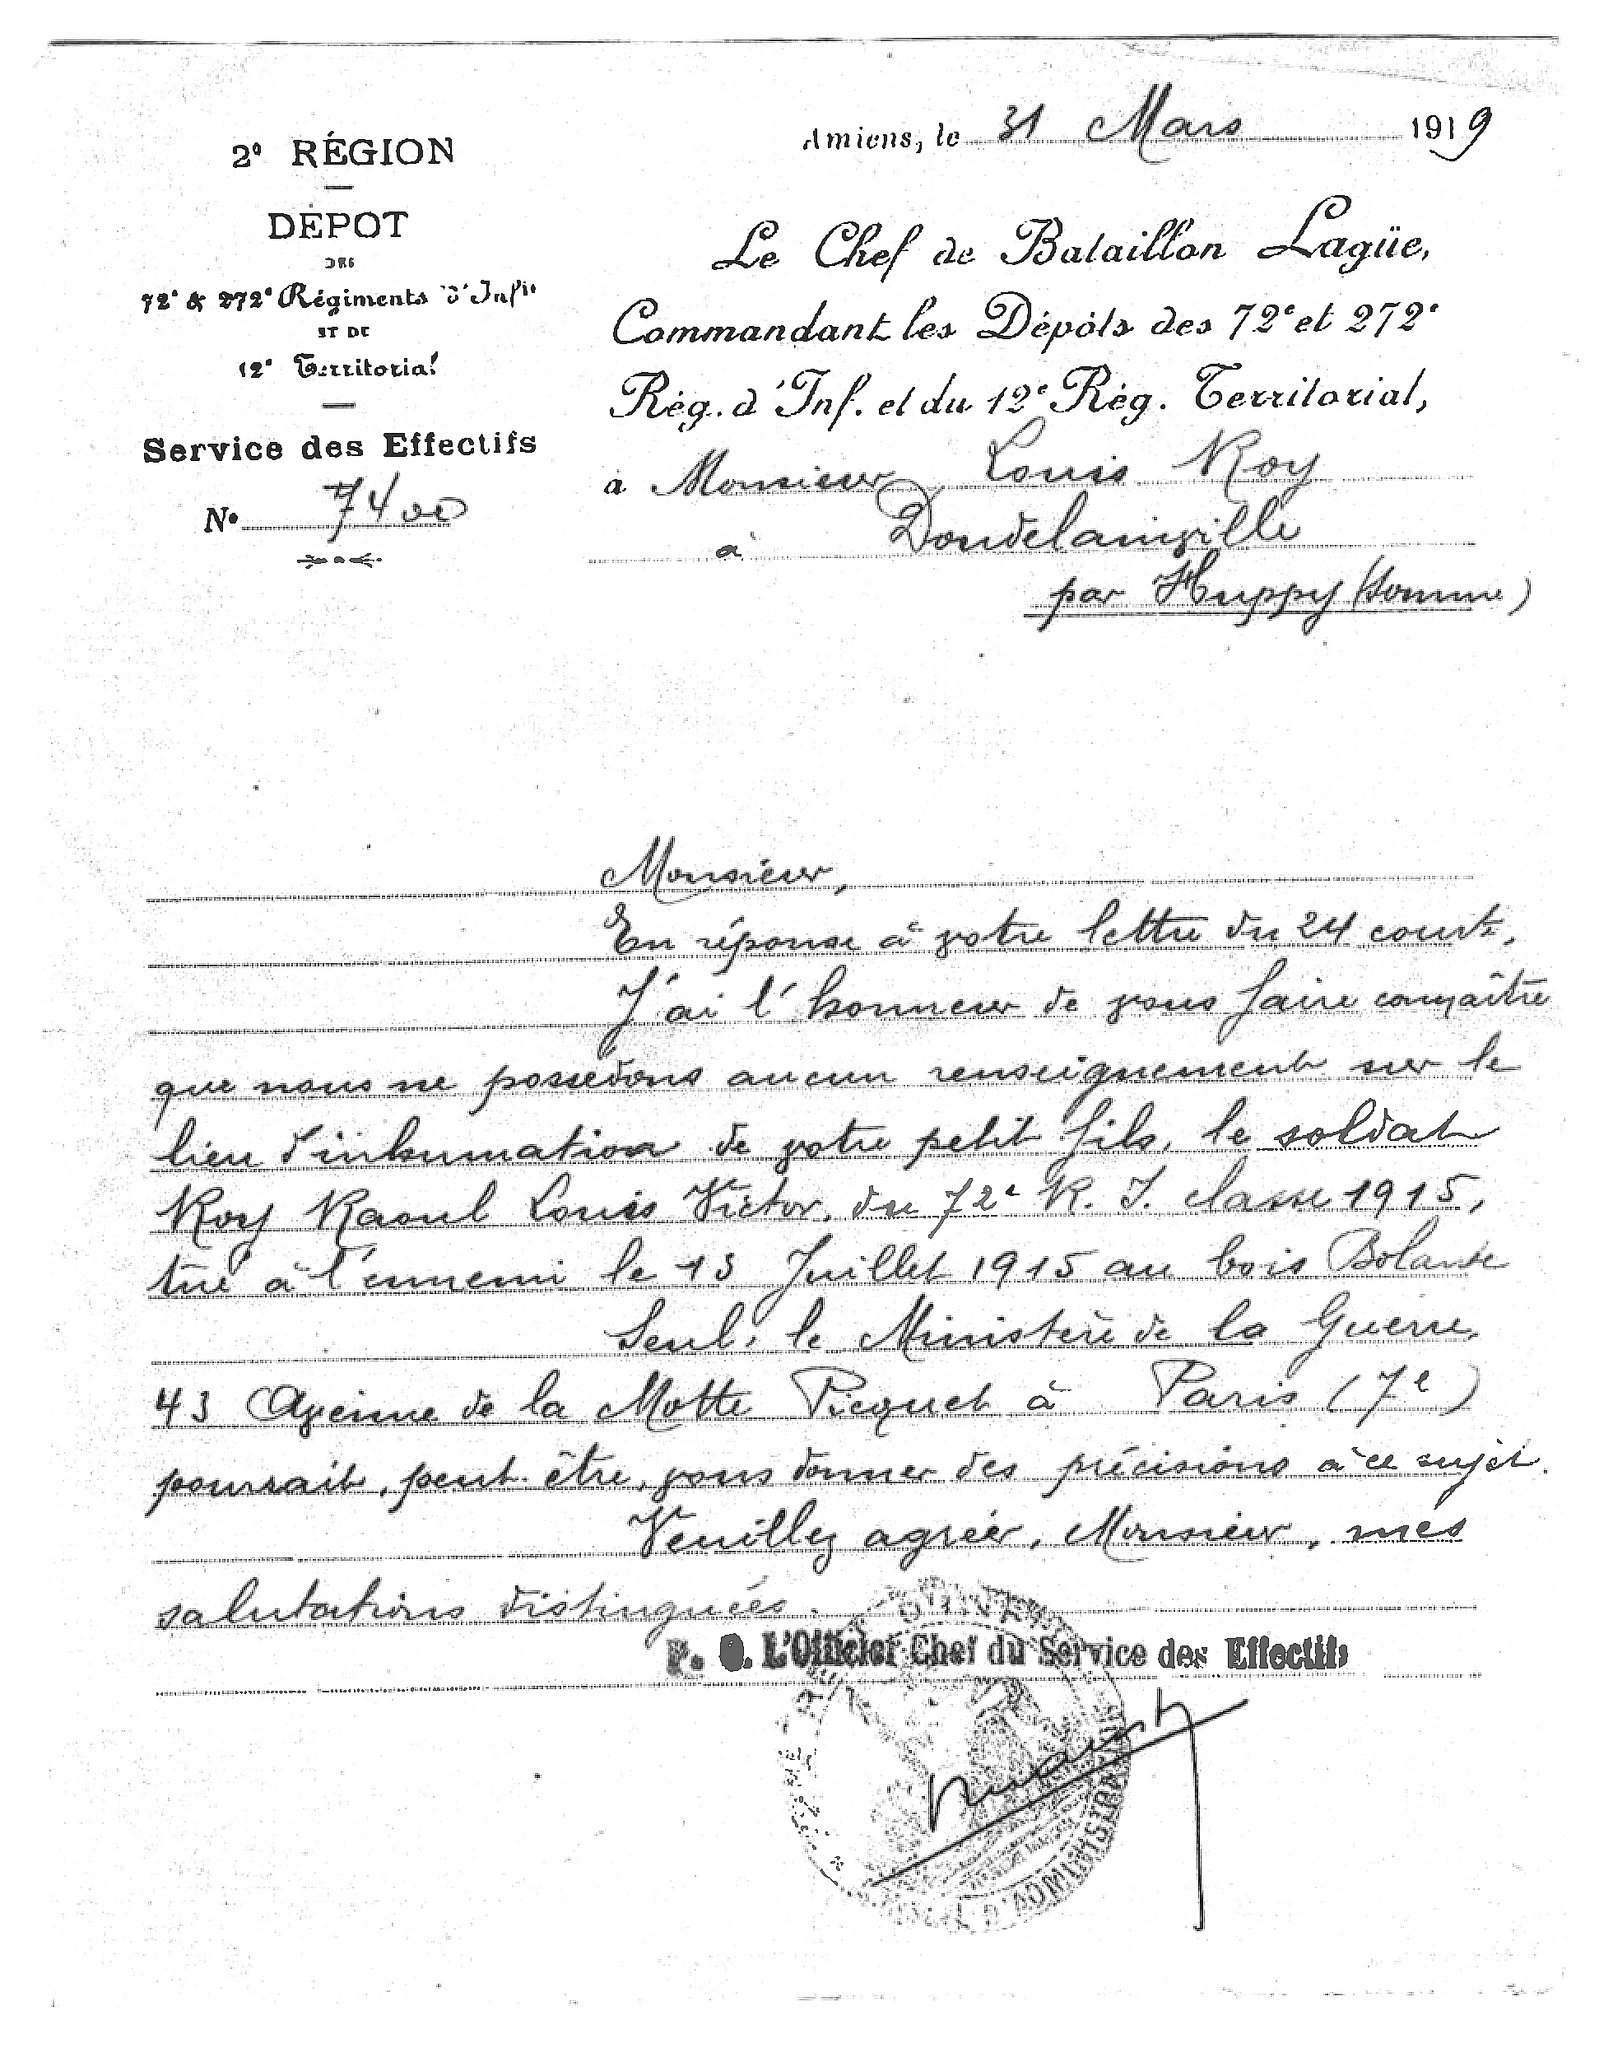 2e RÉGION
DÉPOT
DES
72e & 272e Régiments d'Infie
ET DU
12e Territorial
Service des Effectifs
No 7400
Amiens, le 31 Mars 1919
Le Chef de Bataillon Lagüe,
Commandant les Dépôts des 72e et 272e
Rég. d'Inf. et du 12e Rég. Territorial,
à Monsieur Louis Roy
à Doudelainville
par Huppy (Somme)
Monsieur,
En réponse à votre lettre du 24 court,
J'ai l'honneur de vous faire connaître
que nous ne possedons aucun renseignement sur le
lieu d'inhumation de votre petit fils, le soldat
Roy Raoul Louis Victor, du 72e R. I. classe 1915,
tué à l'ennemi le 13 Juillet 1915 au bois Bolante
Seul, le Ministère de la Guerre,
43 Avenue de la Motte Picquet à Paris (7e)
pourrait, peut-être, vous donner des précisions à ce sujet.
Veuillez agréer, Monsieur, mes
salutations distinguées.
P. O. L'Officier Chef du Service des Effectifs
D'ADMINISTRATION